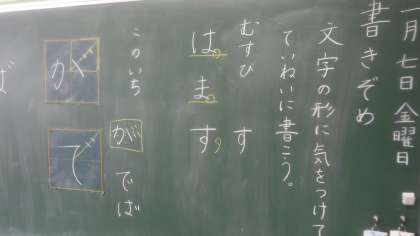 一月七日金曜日
書きぞめ
文字の形に気をつけて
ていねいに書こう。
むすび す
はます
このいち が でば
が で
ば